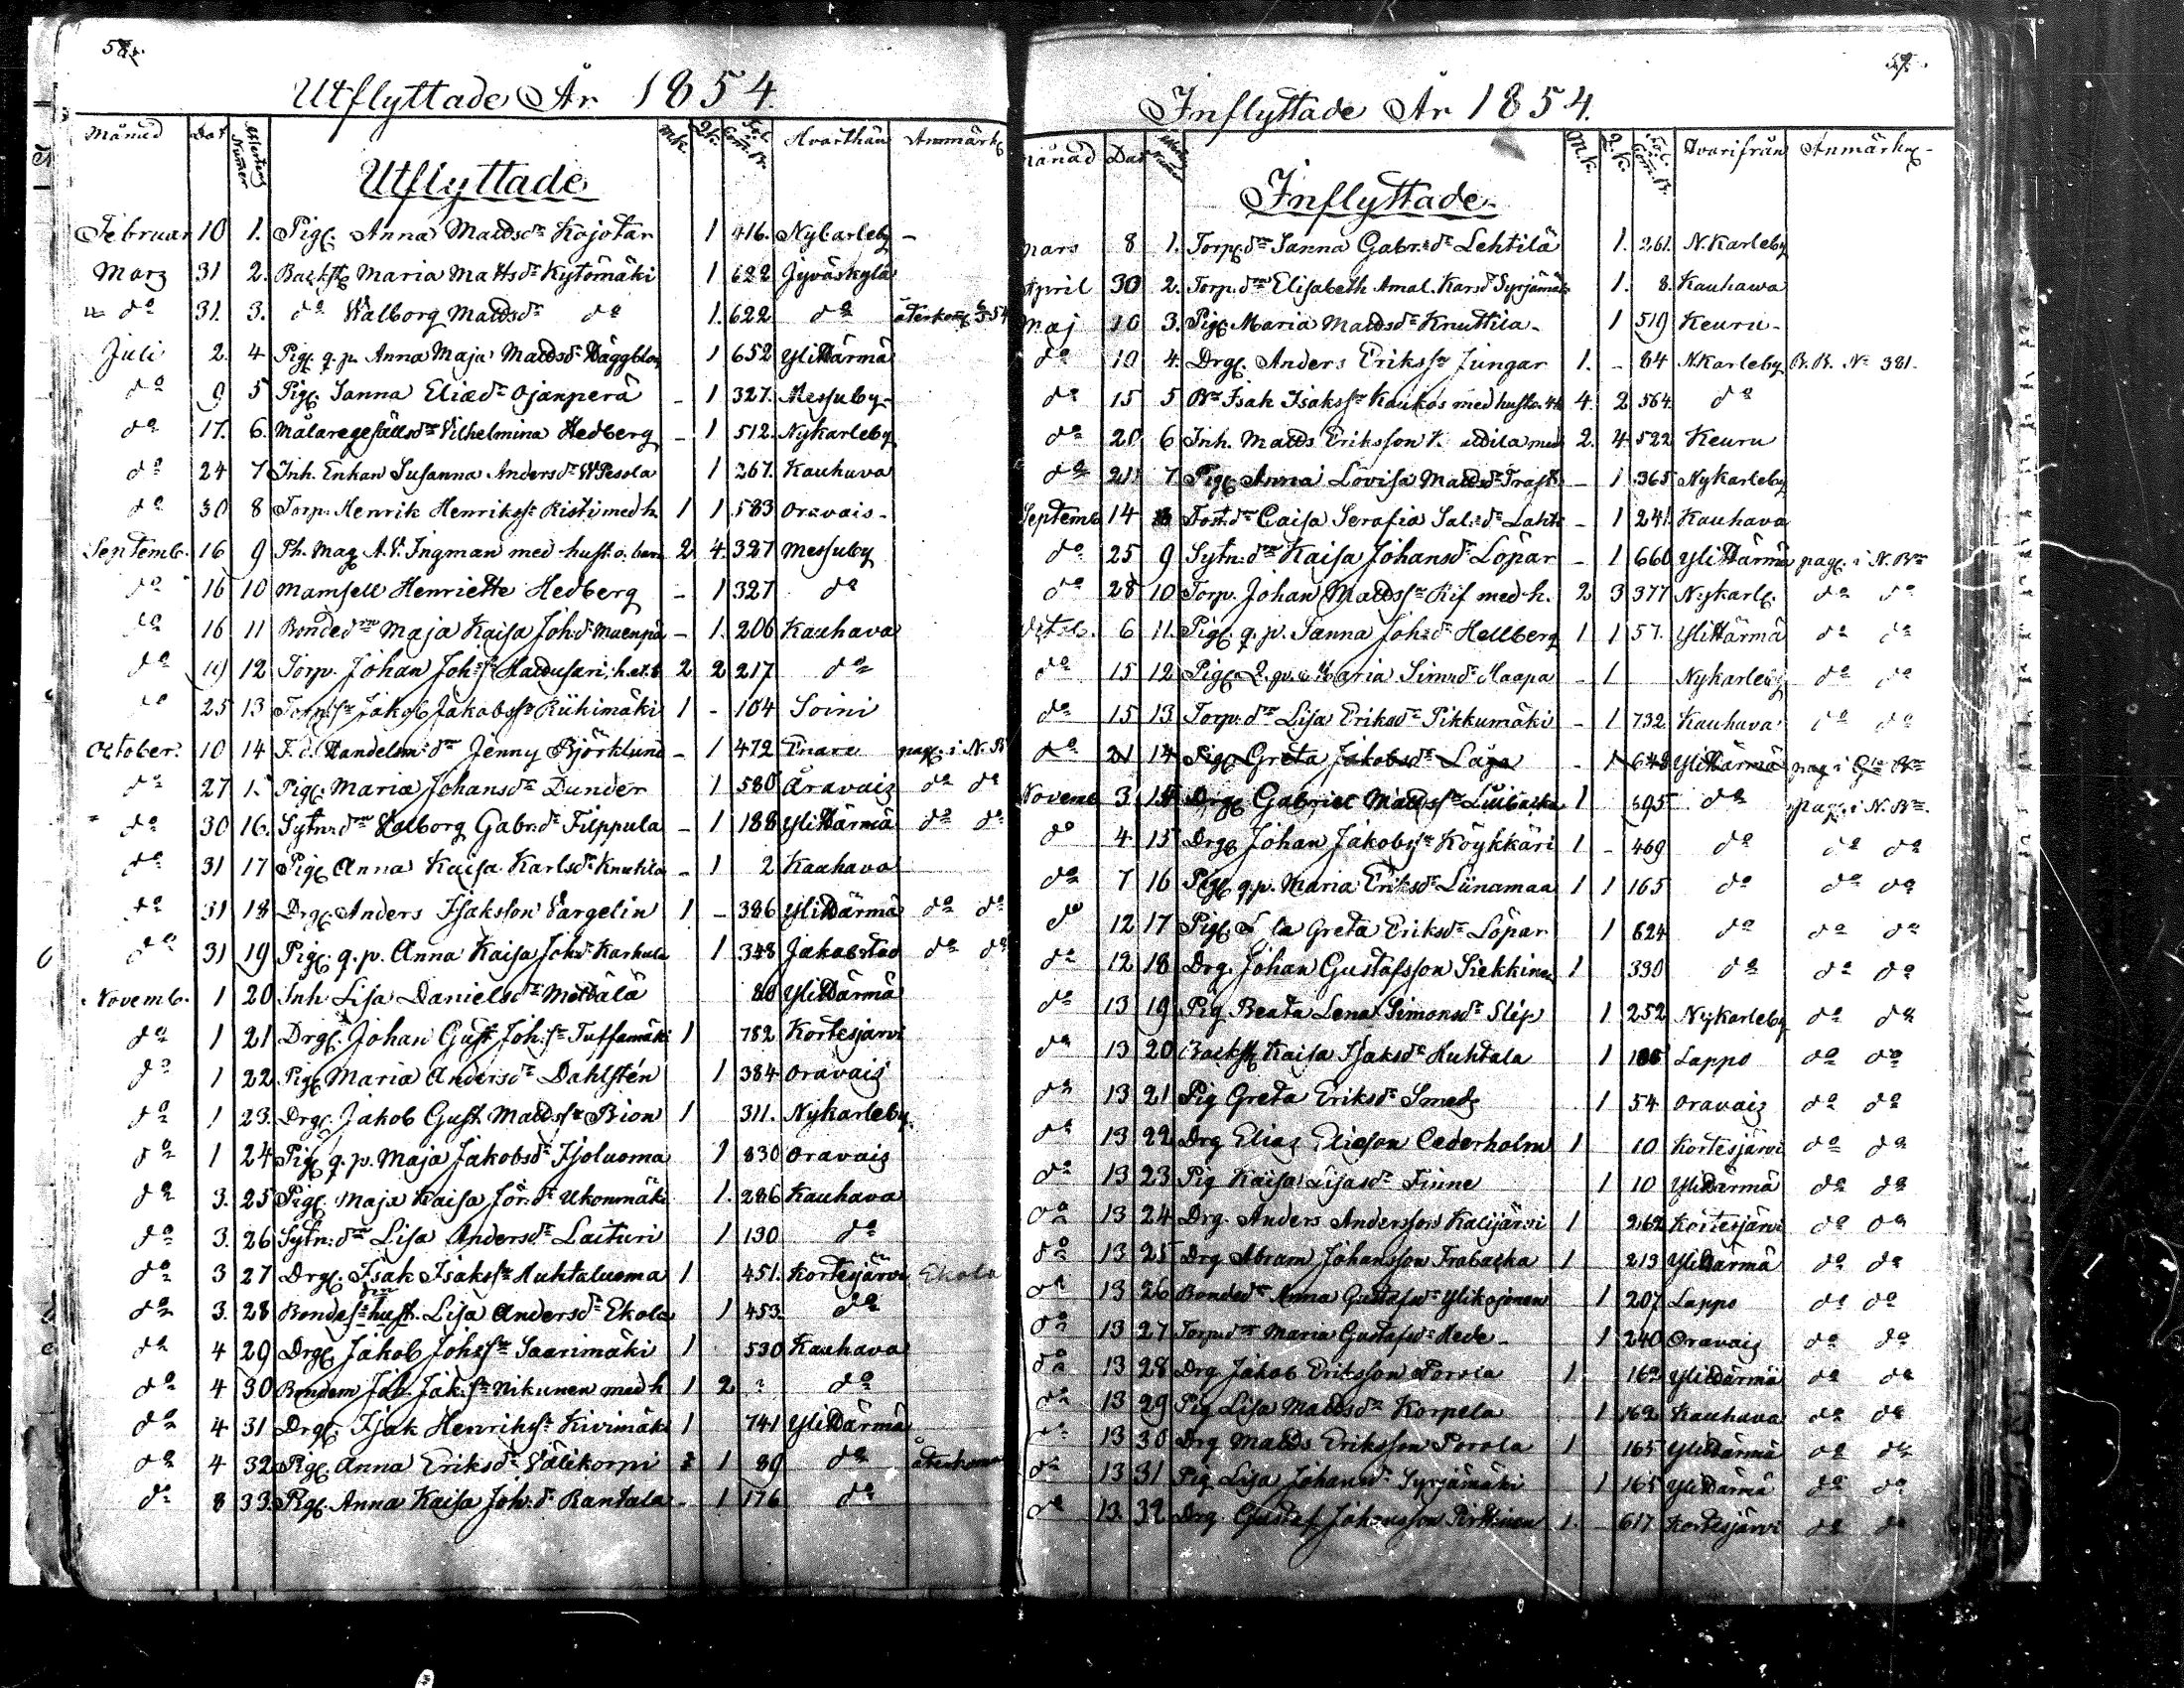 58.
Utflyttade År 1854.
Månad Dat Attestens Numer M.k. Q.k. Fol. Com.B. Hvarthän Anmärkg
Utflyttade
Februar 10 1. Pig. Anna Mattsdr Kojotar 1 416. Nykarleby -
Marz 31 2. Backstg Maria Mattsdr Kytömäki 1 622 Jyväskylä
do 31. 3. do Walborg Mattsdr do 1. 622 do återkom
Juli 2. 4 Pig. q.p. Anna Maja Mattsdr Häggblom 1 652 YliHärmä
do 9 5 Pig. Sanna Eliædr Ojanperä - 1 327. Messuby -
do 17. 6. Målaregesällsdr Vilhelmina Hedberg - 1 512. Nykarleby
do 24 7 Inh. Enkan Susanna Andersdr WPesola 1 267. Kauhava
do 30 8 Torp. Henrik Henrikssn Risti med h. 1 1 583 Oravais -
Septemb. 16 9 Ph. Mag. A.V. Ingman med hust. o. barn 2 4. 327 Messuby
do 16 10 Mamsell Henriette Hedberg - 1 327 do
do 16 11 Bondedr Maja Kaisa Joh.dr Maenpä - 1. 206 Kauhava
do 19 12 Torp. Johan Joh.sn Haudusari, h. o. b. 2 2 217 do
do 25 13 Torp.sn Jakob Jakobssn Riihimäki 1 - 104 Soini
October. 10 14 F.d. Handelsm.dr Jenny Björklund - 1 472 Enare pag. i N.B
do 27 15 Pig. Maria Johansdr Dunder 1 580 Åravais do do
do 30 16. Sytn:dr Walborg Gabr.dr Filppula - 1 188 YliHärmä do do
do 31 17 Pig. Anna Kaisa Karlsdr Knuhtila - 1 2 Kauhava
do 31 18 Drg. Anders Isaksson Vargelin 1 - 386 YliHärmä do do
do 31 19 Pig. q.p. Anna Kaisa Joh.dr Karhula 1 348 Jakobstad do do
Novemb. 1 20 Inh Lisa Danielsdr Mattälä 80 YliHärmä
do 1 21 Drg. Johan Gust. Joh.sn Tuffamäki 1 782 Kortesjärvi
do 1 22 Pig. Maria Andersdr Dahlstén 1 384 Oravais
do 1 23. Drg. Jakob Gust. Mattssn Bion 1 311. Nykarleby.
do 1 24 Pig. q.p. Maja Jakobsdr Isoluoma 1 830 Oravais
do 3. 25 Pig. Maja Kaisa Jör.dr Ukonmäki 1. 286 Kauhava
do 3. 26 Sytn:dr Lisa Andersdr Laituri 1 130 do
do 3 27 Drg. Isak Isakssn Huhtaluoma 1 451. Kortesjärvi Ekola
do 3. 28 Bondesn hust. Lisa Andersdr Ekola 1 453 do
do 4 29 Drg. Jakob Joh.sn Saarimäki 1 530 Kauhava
do 4 30 Bondem Joh. Jak.sn Nikunen med h 1 2 ? do
do 4 31 Drg. Isak Henrikssn Kivimäki 1 741 YliHärmä
do 4 32 Pig. Anna Eriksdr Välikorpi 1 89 do återkom
do 8 33 Pig. Anna Kaisa Joh.dr Rantala - 1 176 do
59.
Inflyttade År 1854.
Månad Dat M.k. Q.k. Fol. Com.B. Hvarifrån Anmärkng
Inflyttade
Mars 8 1. Torp.dr Sanna Gabr.dr Lehtilä 1. 261. N.Karleby
April 30 2. Torp.dr Elisabeth Amal. Karsdr Syrjämäki 1. 8. Kauhawa
Maj 10 3. Pig. Maria Mattsdr Knuttila - 1 519 Keuru -
do 10 4. Drg. Anders Erikssn Jungar 1. - 84 N.Karleby B.B. No 381.
do 15 5 Bn Isak Isakssn Kaukos med hustr. 4. 2 564. do
do 20 6 Inh. Matts Eriksson med 2. 4 522 Keuru
do 21 7 Pig. Anna Lovisa Mattsdr Trask - 1 365 Nykarleby
Septemb 14 8 Torp.dr Caisa Serafia Sal.dr Lahti - 1 241. Kauhava
do 25 9 Sytn:dr Kaisa Johansdr Löpar - 1 660 YliHärmä pag. i N.Bn
do 28 10 Torp. Johan Mattssn Kif med h. 2 3 377 Nykarl. do do
Octob. 6 11. Pig. q.p. Sanna Joh.dr Hellberg 1 1 57. YliHärmä do do
do 15 12 Pig. Maria Sim.dr Haapa - 1 Nykarleby do do
do 15 13 Torp.dr Lisa Eriksdr Pikkumäki - 1 732 Kauhava do do
do 21 14 Pig. Greta Jakobsdr Låga - 1 648 YliHärmä pag i
Novemb 3 14 Drg. Gabriel Mattssn Luibacka 1 695 do pag. i N.Bn.
do 4 15 Drg. Johan Jakobssn Köykkäri 1 - 469 do do do
do 7 16 Pig. q.p. Maria Eriksdr Liinamaa 1 1 165 do do do
do 12 17 Pig. Greta Eriksdr Löpar 1 624 do do do
do 12 18 Drg. Johan Gustafsson Siekkinen 1 330 do do do
do 13 19 Pig Beata Lena Simonsdr Slip 1 252 Nykarleby do do
do 13 20 Backst. Kaisa Isaksdr Huhtala 1 Lappo do do
do 13 21 Pig Greta Eriksdr Smeds 1 54 Oravais do do
do 13 22 Drg Elias Eliæson Cederholm 1 10 Kortesjärvi do do
do 13 23 Pig Kaisa Lisa dr Finne 1 10 YliHärmä do do
do 13 24 Drg. Anders Andersson Kalijärvi 1 262 Kortesjärvi do do
do 13 25 Drg Abram Johansson Frabacka 1 213 YliHärmä do do
do 13 26 Bondedr Anna Gustafsdr Ylikojonen 1 207 Lappo do do
do 13 27 Torp.dr Maria Gustafsdr Hede - 1 240 Oravais do do
do 13 28 Drg Jakob Eriksson Porola 1 162 YliHärmä do do
do 13 29 Pig Lisa Mattsdr Korpela 1 162 Kauhava do do
do 13 30 Drg Matts Eriksson Porola 1 165 YliHärmä do do
do 13 31 Pig Lisa Johansdr Syrjämäki 1 165 YliHärmä do do
do 13. 32 Drg. Gustaf Johansson Pirttinen 1. 617 Kortesjärvi do do